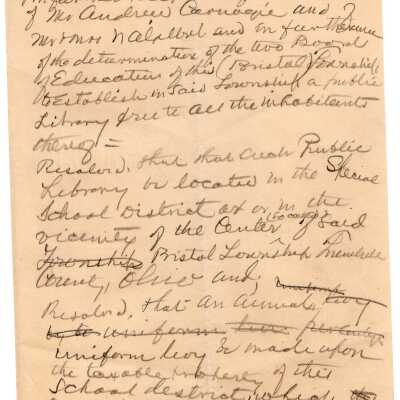 of Mr Andrew Carnagie and of
Mr & Mrs N A and in furtherance
of the determination of the two Board
of Education of this (Bristol) Township
to Establish in Said Township a public
Library free to all the inhabitants
thereof =
Resolved, that that each Public
Library be located in the Special
School District at or in the
vicinity of the Center of Said
Township Bristol Township Trumbull
County, Ohio and,
uniform
Resolved, that an annual levy
by the uniform levy
uniform levy be made upon
the taxable property of this
School destrict, which